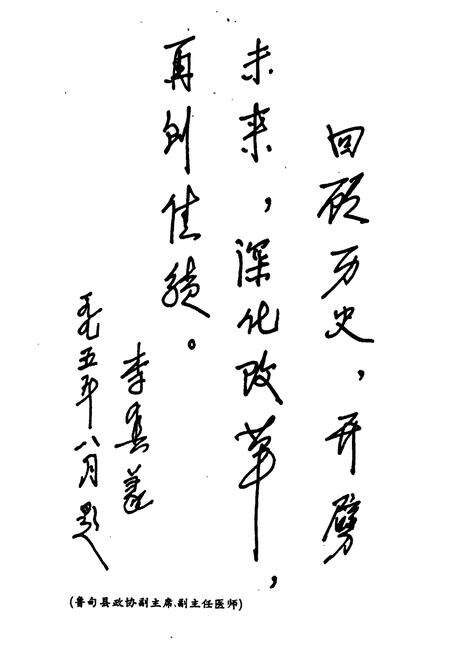 回顾历史，开劈
未来，深化改革，
再创佳绩。
李具義
一九九五年八月题
(鲁甸县政协副主席、副主任医师)